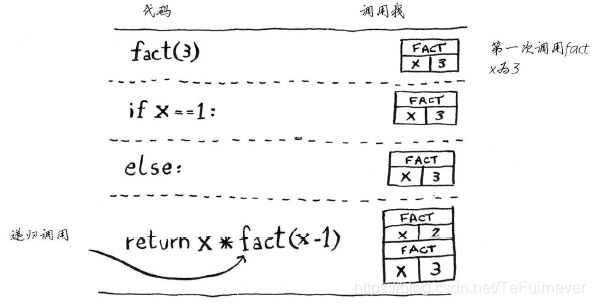 代码 调用栈
fact(3)
FACT
X 3
第一次调用fact
x为3
if x==1:
FACT
X 3
else:
FACT
X 3
递归调用
return x * fact(x-1)
FACT
X 2
FACT
X 3
https://blog.csdn.net/TeFuirnever